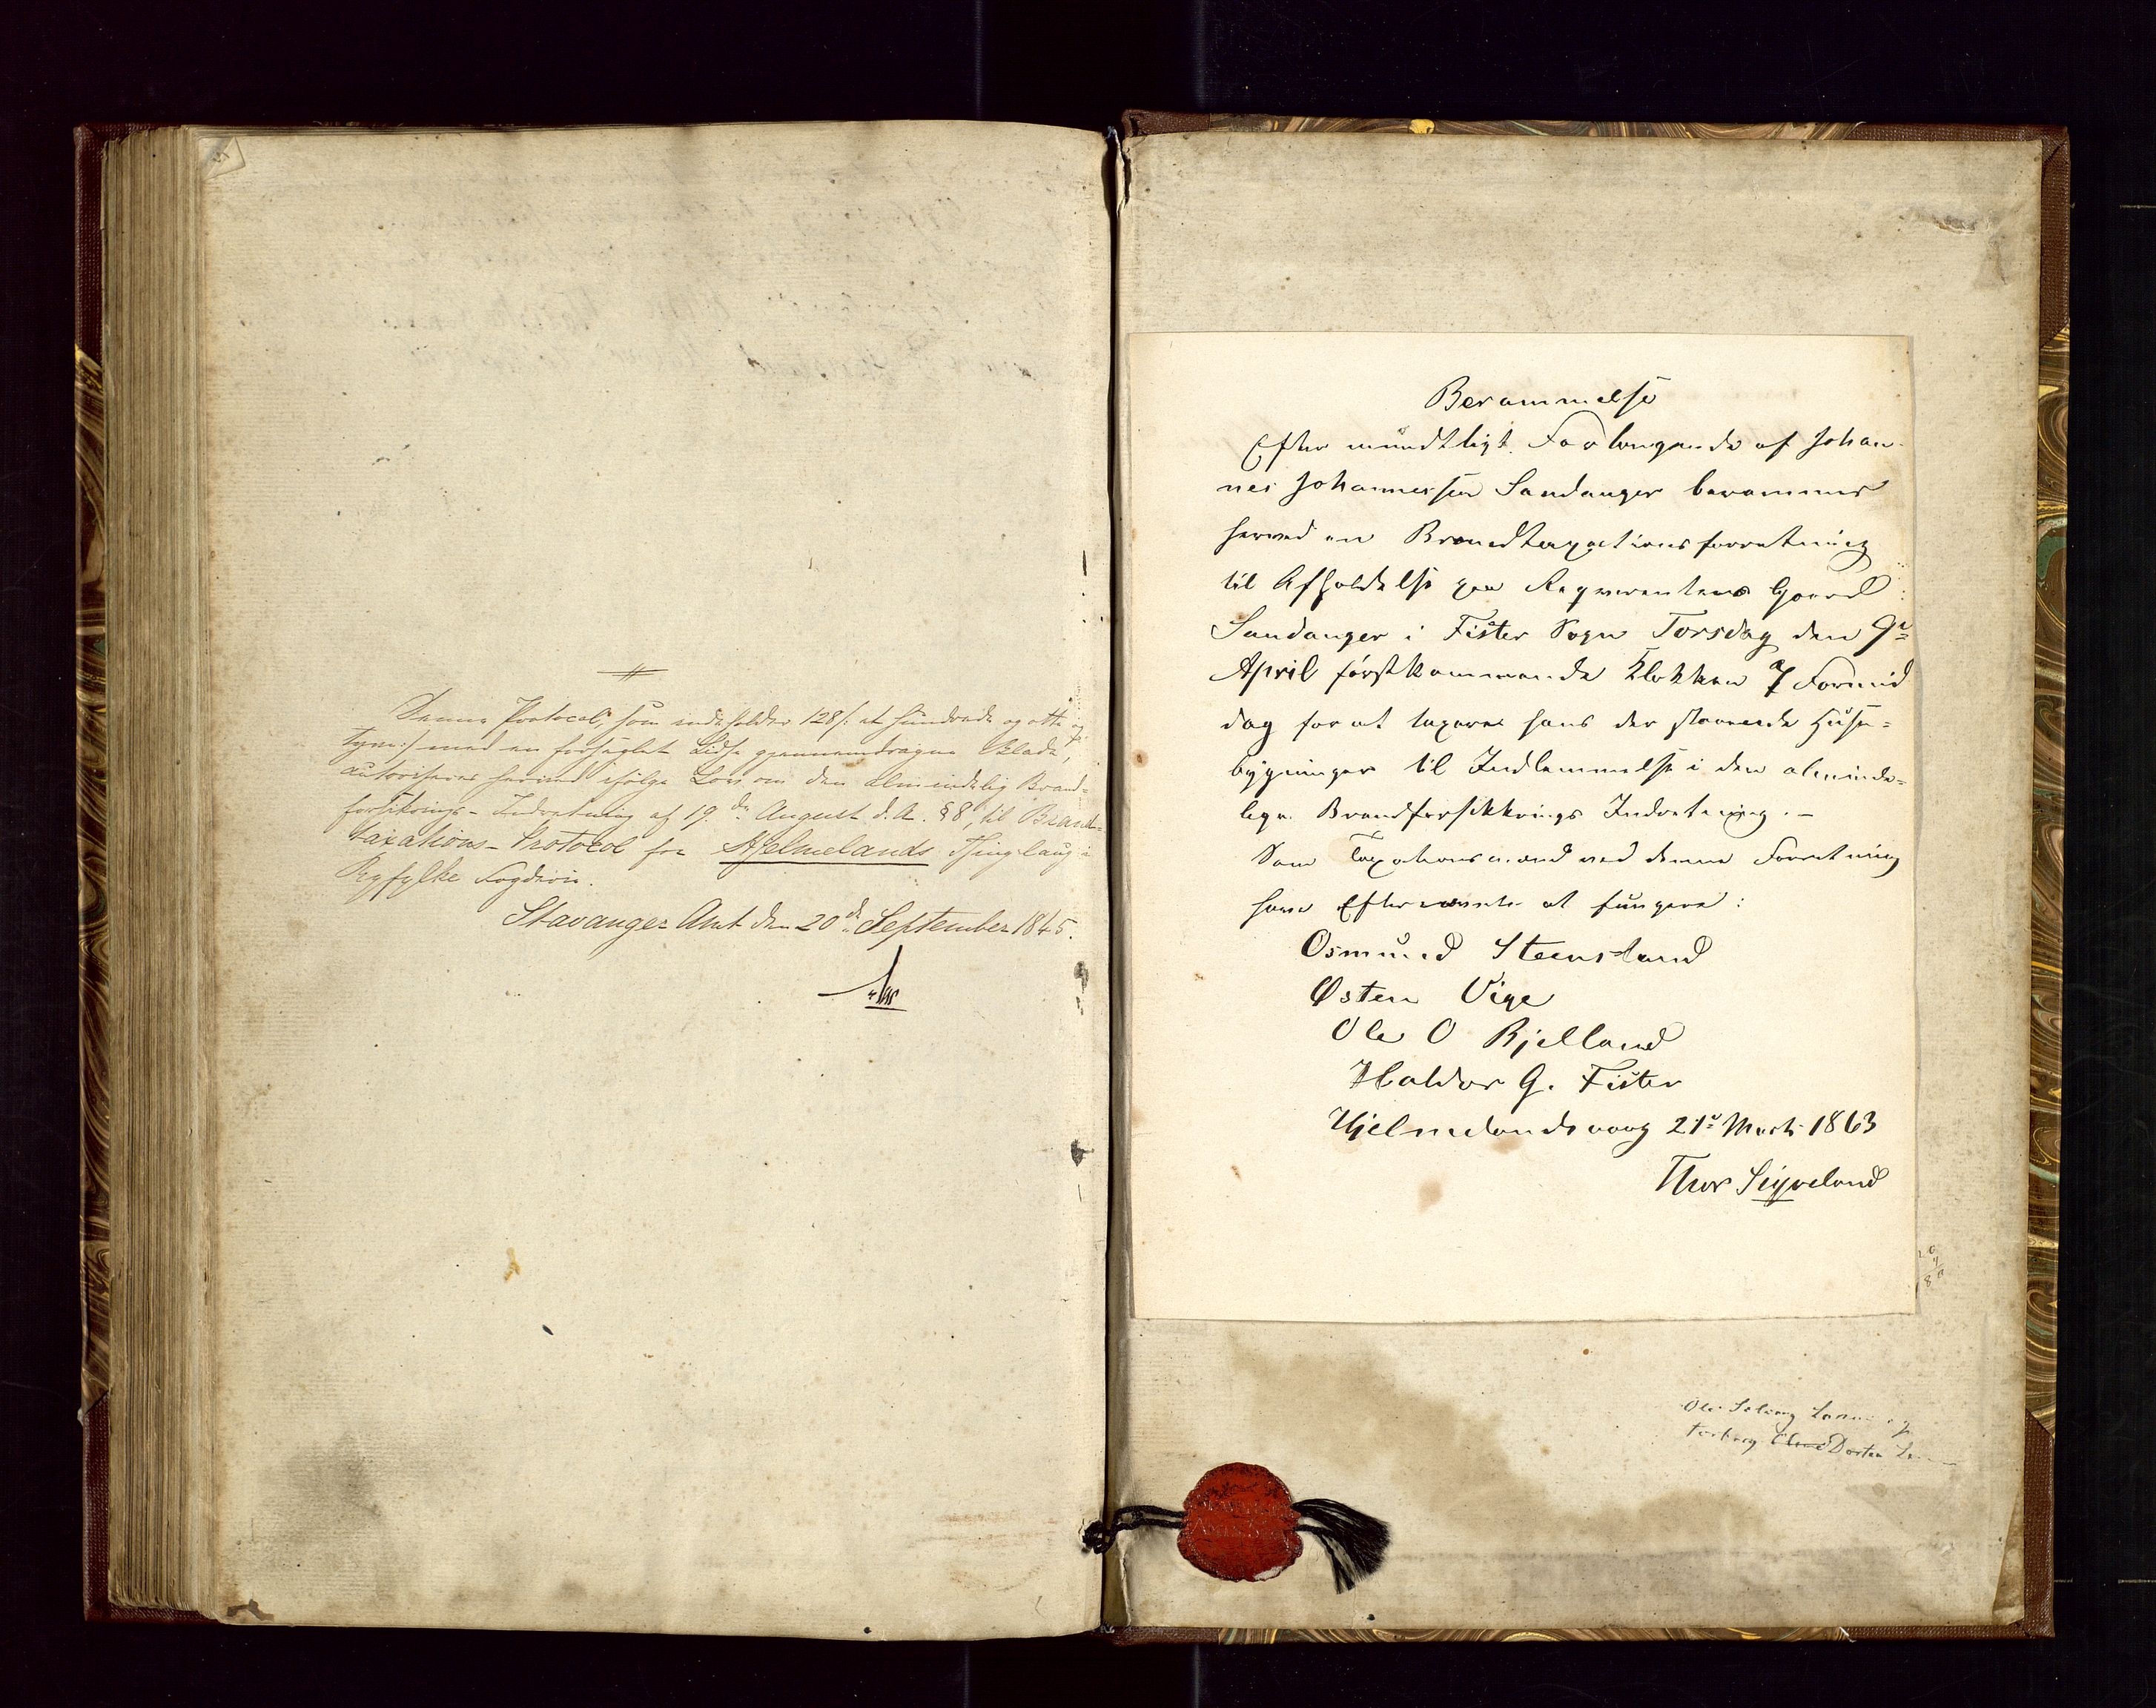 Denne Protocol, som indeholder 128/: et hundrede og otte og
tyve:/ med en forseglet Lidse gjennemdragne Blade,
autoriseres herved ifølge Lov om den almindelig Brand-
forsikrings-Indretning af 19de August d. A. §8, til Brand-
taxations-Protocol for Hjelmelands Thinglaug i
Ryfylke Fogderie.
Stavanger Amt den 20de September 1845.
Berammelse
Efter mundtligt Forlangende af Johan-
nes Johannessen Sandanger berammes
herved en Brandtaxationsforretning
til Afholdelse paa Reqvirentens Gaard
Sandanger i Fister Sogn Torsdag den 9de
April førstkommende Klokken 7 Formid
dag for at taxeres hans der staaende Huse-
bygninger til Indlemmelse i den alminde-
lige Brandforsikkrings Indretning.-
Som Taxationsmænd ved denne Forretning
have Efternævnte at fungere:
Osmund Steensland
Østen Vige
Ole O Bjelland
Haldor G. Fister
Hjelmelandsvaag 21de Marts 1863
Thor Sigveland
Ole
Dortea